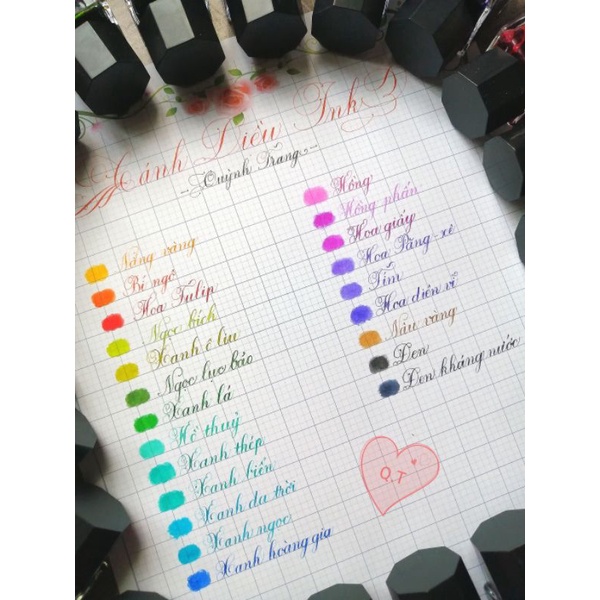 Cánh Diều Ink
Quỳnh Trang
Nắng vàng
Bí ngô
Hoa Tulip
Ngọc bích
Xanh ô liu
Ngọc lục bảo
Xanh lá
Hồ thuỷ
Xanh thép
Xanh biển
Xanh da trời
Xanh ngọc
Xanh hoàng gia
Hồng
Hồng phấn
Hoa giấy
Hoa Păng-xê
Tím
Hoa diên vĩ
Nâu vàng
Đen
Đen kháng nước
Q.T